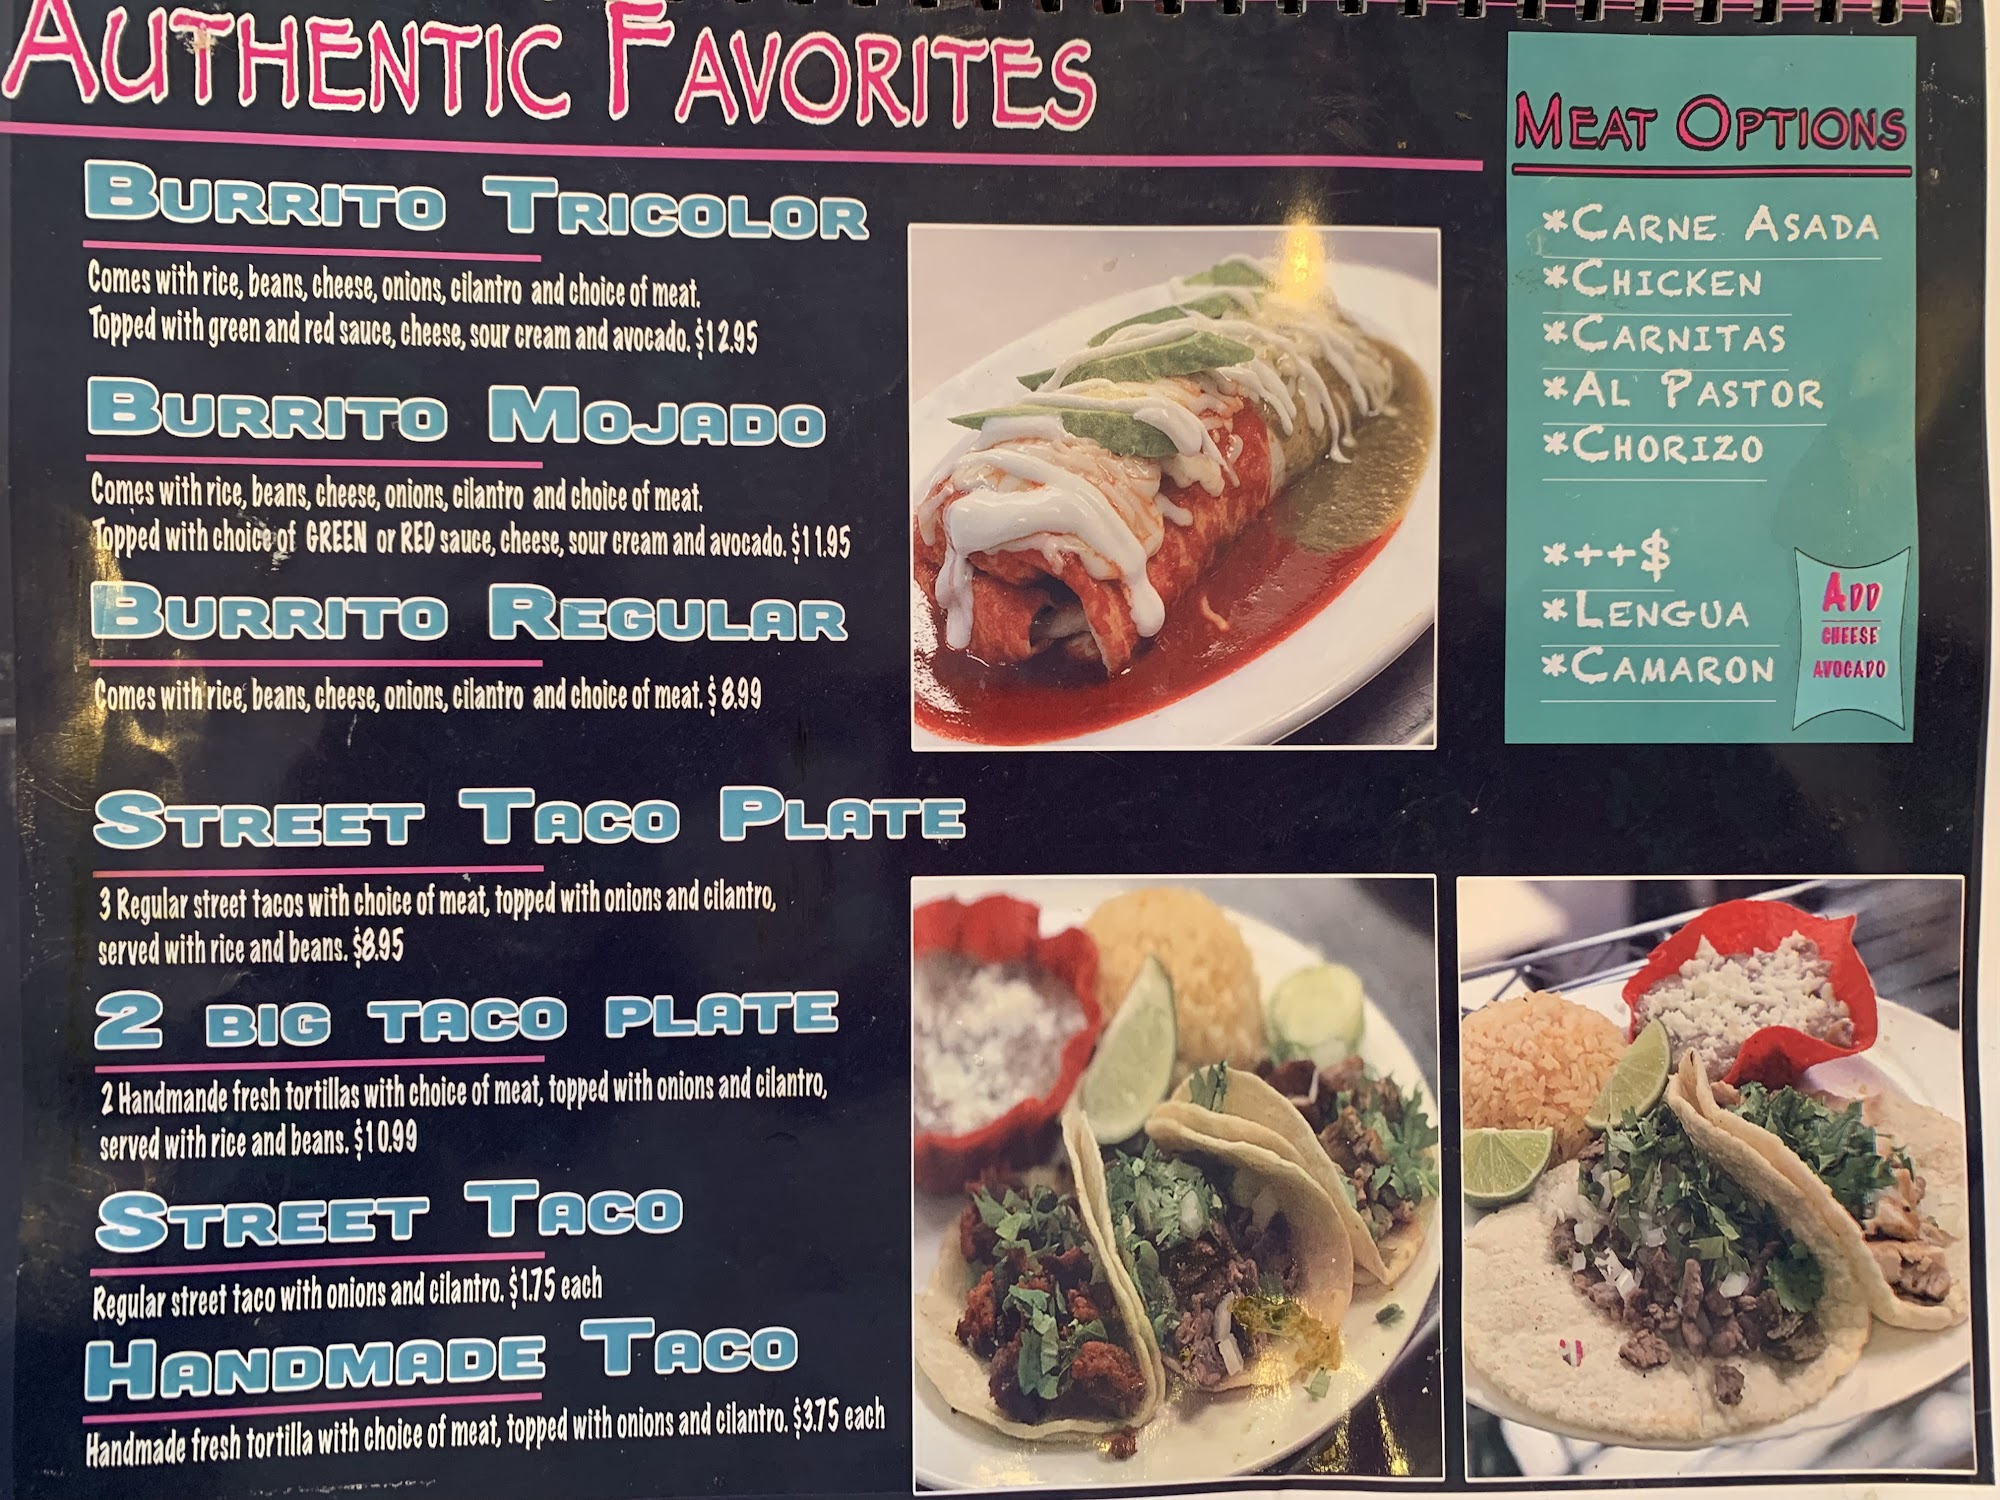 AUTHENTIC FAVORITES
BURRITO TRICOLOR
Comes with rice, beans, cheese, onions, cilantro and choice of meat.
Topped with green and red sauce, cheese, sour cream and avocado. $12.95
BURRITO MOJADO
Comes with rice, beans, cheese, onions, cilantro and choice of meat.
Topped with choice of GREEN or RED sauce, cheese, sour cream and avocado. $11.95
BURRITO REGULAR
Comes with rice, beans, cheese, onions, cilantro and choice of meat. $8.99
STREET TACO PLATE
3 Regular street tacos with choice of meat, topped with onions and cilantro,
served with rice and beans. $8.95
2 BIG TACO PLATE
2 Handmande fresh tortillas with choice of meat, topped with onions and cilantro,
served with rice and beans. $10.99
STREET TACO
Regular street taco with onions and cilantro. $1.75 each
HANDMADE TACO
Handmade fresh tortilla with choice of meat, topped with onions and cilantro. $3.75 each
MEAT OPTIONS
*CARNE ASADA
*CHICKEN
*CARNITAS
*AL PASTOR
*CHORIZO
*++$
*LENGUA
*CAMARON
ADD
CHEESE
AVOCADO